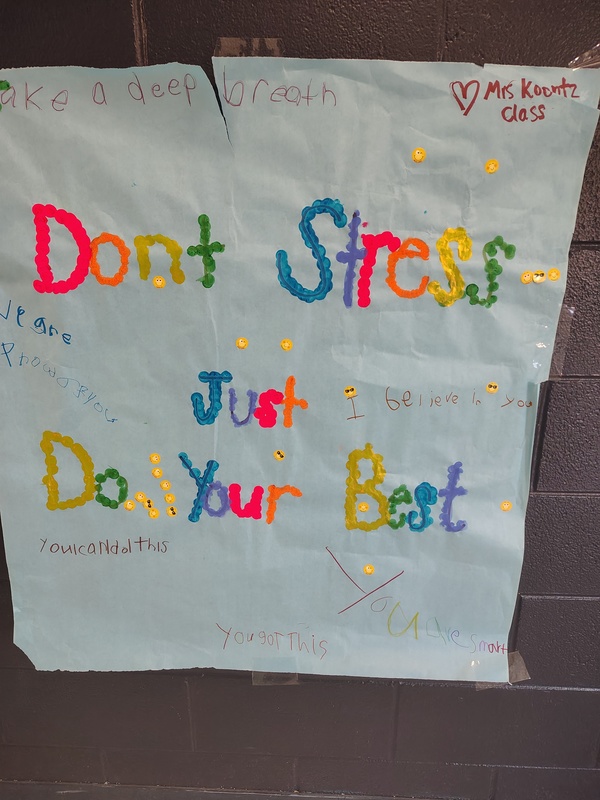 ake a deep breath
♡ Mrs Koontz
class
Dont Stress
we are
Proud of you
Just
I believe in you
Do Your Best
you can do this
You are smart
You got This